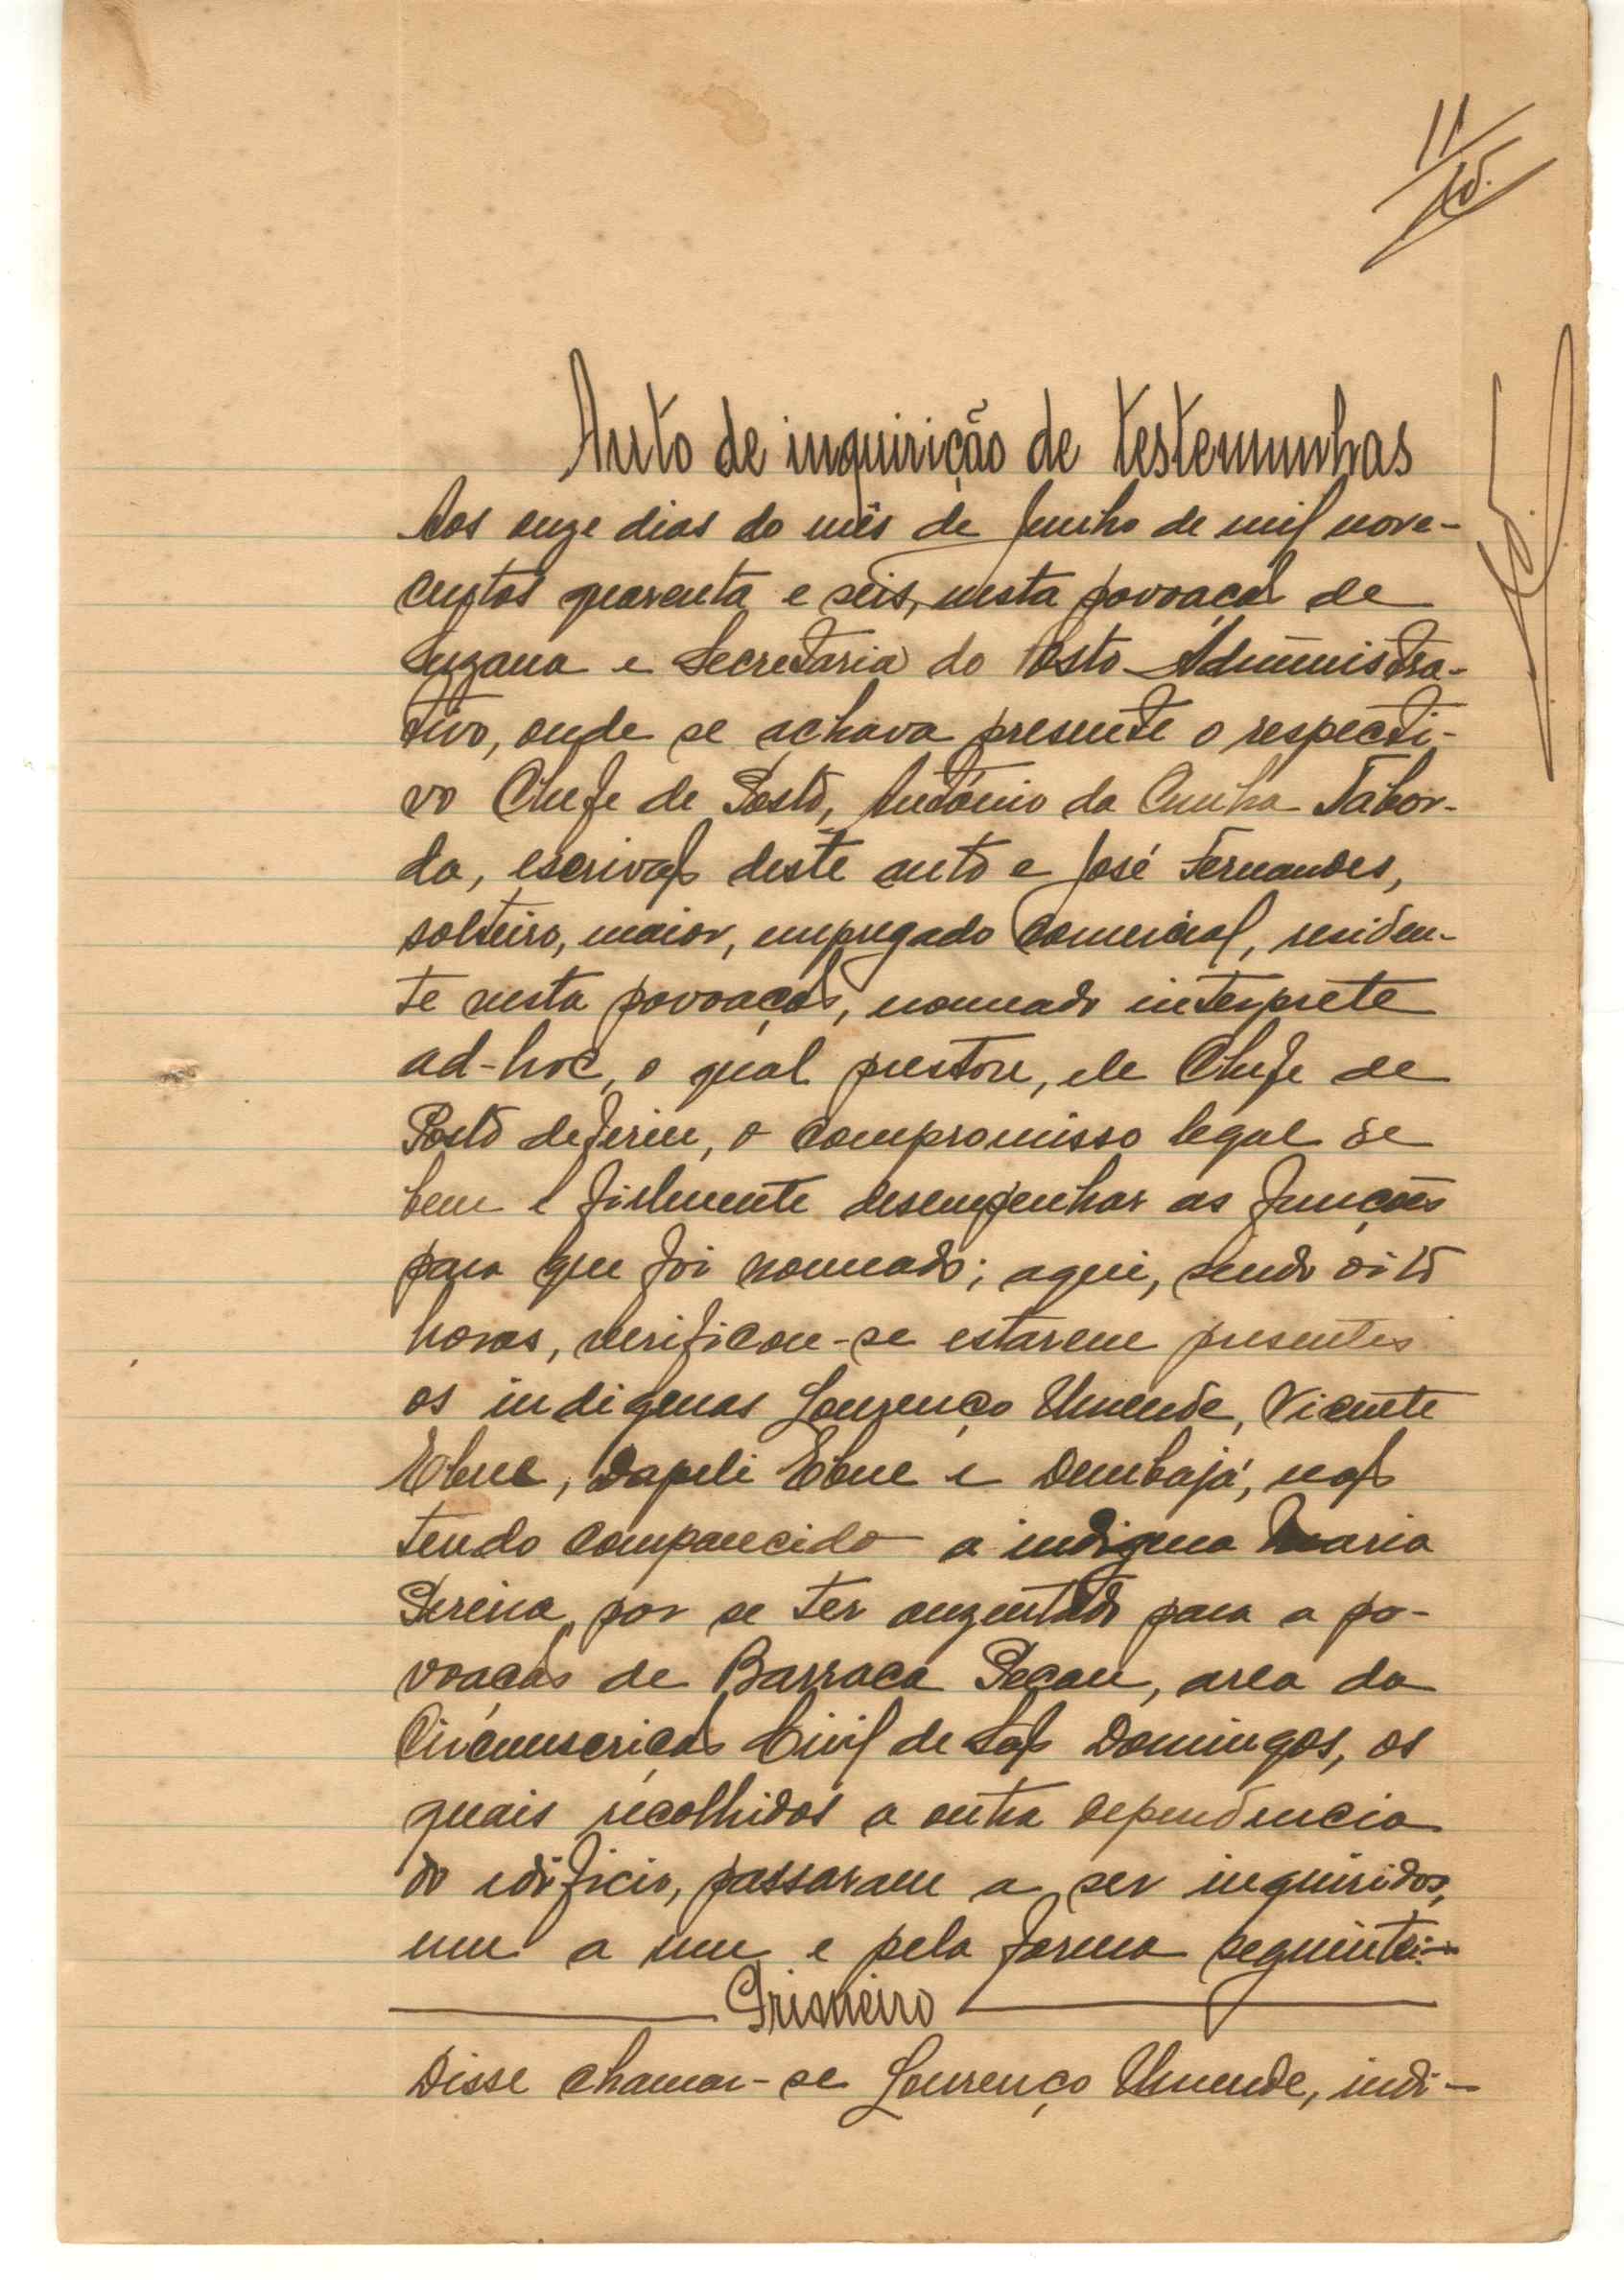 11
Auto de inquirição de testemunhas
Aos onze dias do mês de Junho de mil nove-
centos quarenta e seis, nesta povoação de
Suzana e Secretaria do Posto Administra-
tivo, onde se achava presente o respecti-
vo Chefe de Posto, António da Cunha Tabor-
da, escrivão deste auto e José Fernandes,
solteiro, maior, empregado comercial, residen-
te nesta povoação, nomeado interprete
ad-hoc, o qual prestou, ele Chefe de
Posto deferiu, o compromisso legal de
bem e fielmente desempenhar as funções
para que foi nomeado; aqui, sendo oito
horas, verificou-se estarem presentes
os indigenas Lourenço Umende, Vicente
Ebue, Dapeli Ebue e Dembajá, não
tendo comparecido a indigena Maria
Pereira, por se ter auzentado para a po-
voação de Barraca Pecau, area da
Circunscrição Civil de São Domingos, os
quais recolhidos a outra dependencia
do edificio, passaram a ser inquiridos,
um a um e pela forma seguinte:-
Primeiro
Disse chamar-se Lourenço Umende, indi-